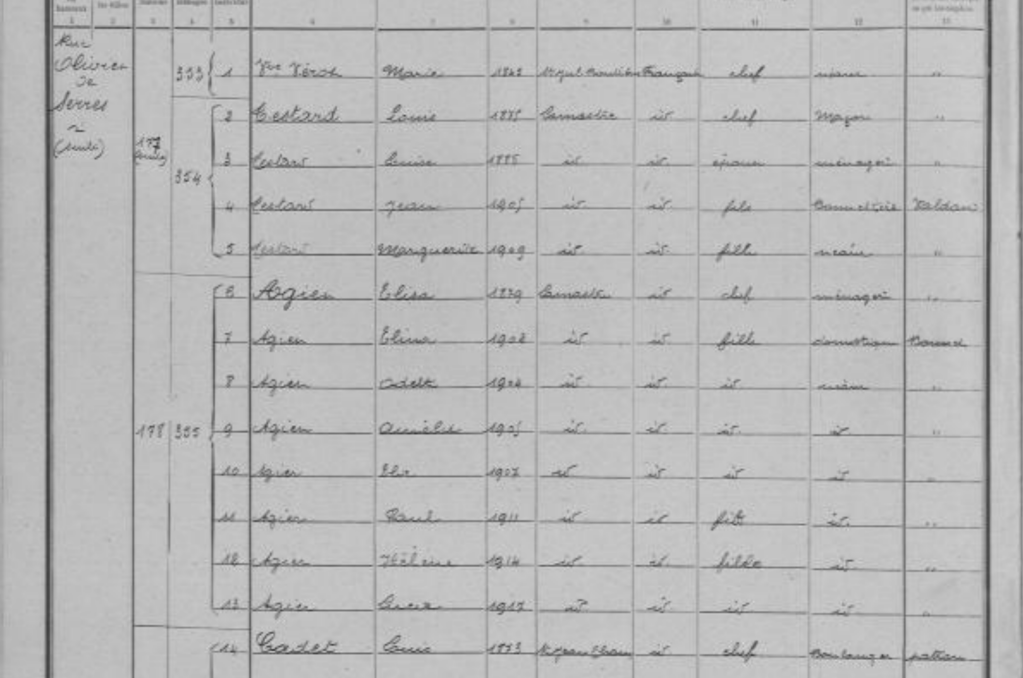 1 2 3 4 5 6 7 8 9 10 11 12 13
Rue Olivier de Serres (suite)
353 1 Vve Vérot Marie 1862 Française chef néant "
177 (suite) 354 2 Testard Louis 1875 Lamastre id chef Maçon "
3 Testard Louise 1885 id id épouse ménagère "
4 Testard Jean 1905 id id fils
5 Testard Marguerite 1909 id id fille néant "
178 355 6 Agier Elisa 1879 Lamastre id chef ménagère "
7 Agier Elina 1902 id id fille domestique
8 Agier Odette 1904 id id id néant "
9 Agier Aurélie 1905 id id id id "
10 Agier 1907 id id id id "
11 Agier Paul 1911 id id fils id "
12 Agier Hélène 1914 id id fille id "
13 Agier 1917 id id id id "
14 Cadet Louis 1873 id chef Boulanger patron